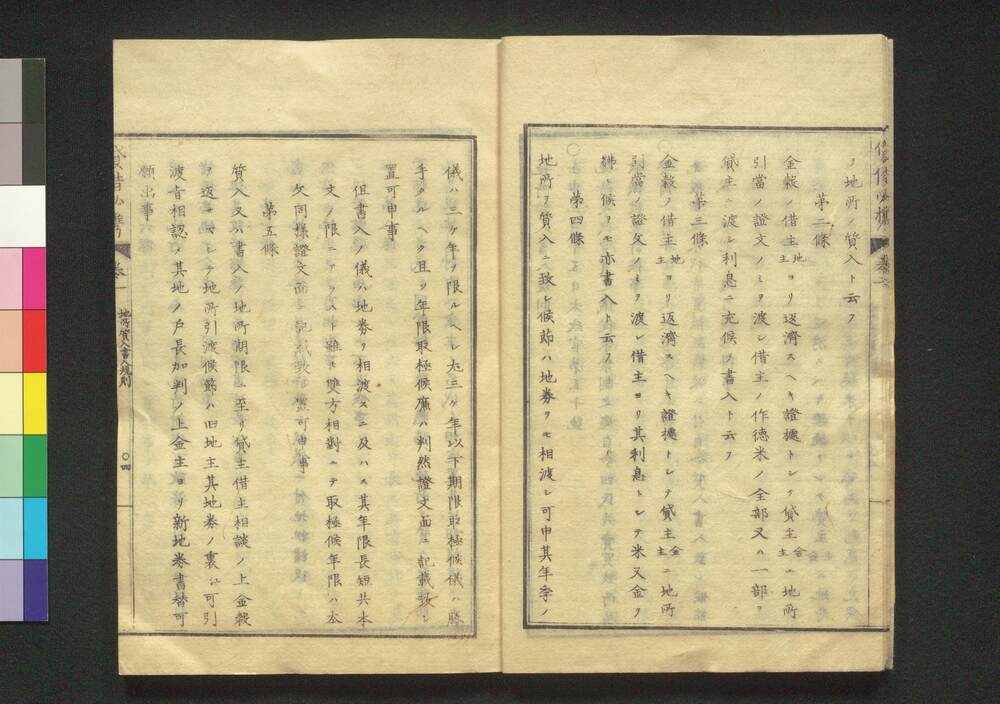 ヲ地所ノ質入ト云フ
第二條
金穀ノ借主地主ヨリ返濟スヘキ證據トシテ貸主金主ニ地所
引當ノ證文ノミヲ渡シ借主ノ作德米ノ全部又ハ一部ヲ
貸主ニ渡シ利息ニ充候ヲ書入ト云フ
第三條
金穀ノ借主地主ヨリ返濟スヘキ證據トシテ貸主金主ニ地所
引當ノ證文ノミヲ渡シ借主ヨリ其利息トシテ米又金ヲ
拂ヒ候ヲモ亦書入ト云フ
○第四條
地所ヲ質入ニ致シ候節ハ地券ヲモ相渡シ可申其年季ノ
儀ハ三ケ年ヲ限ルヘシ尤三ケ年以下期限取極候儀ハ勝
手タルヘク且ツ年限取極候廉ハ判然證文面ニ記載致シ
置可申事
但書入ノ儀ハ地券ヲ相渡スニ及ハス其年限長短共本
文ノ限ニアラスト雖モ雙方相對ニテ取極候年限ハ本
文同樣證文面ニ記載致シ置可申事
第五條
質入又ハ書入ノ地所期限ニ至リ貸主借主相談ノ上金穀
ヲ返サスシテ地所引渡候節ハ旧地主其地券ノ裏江可引
渡旨相認メ其地ノ戶長加判ノ上金主ヨリ新地券書替可
願出事
卷一
地所質入書入規則
○四